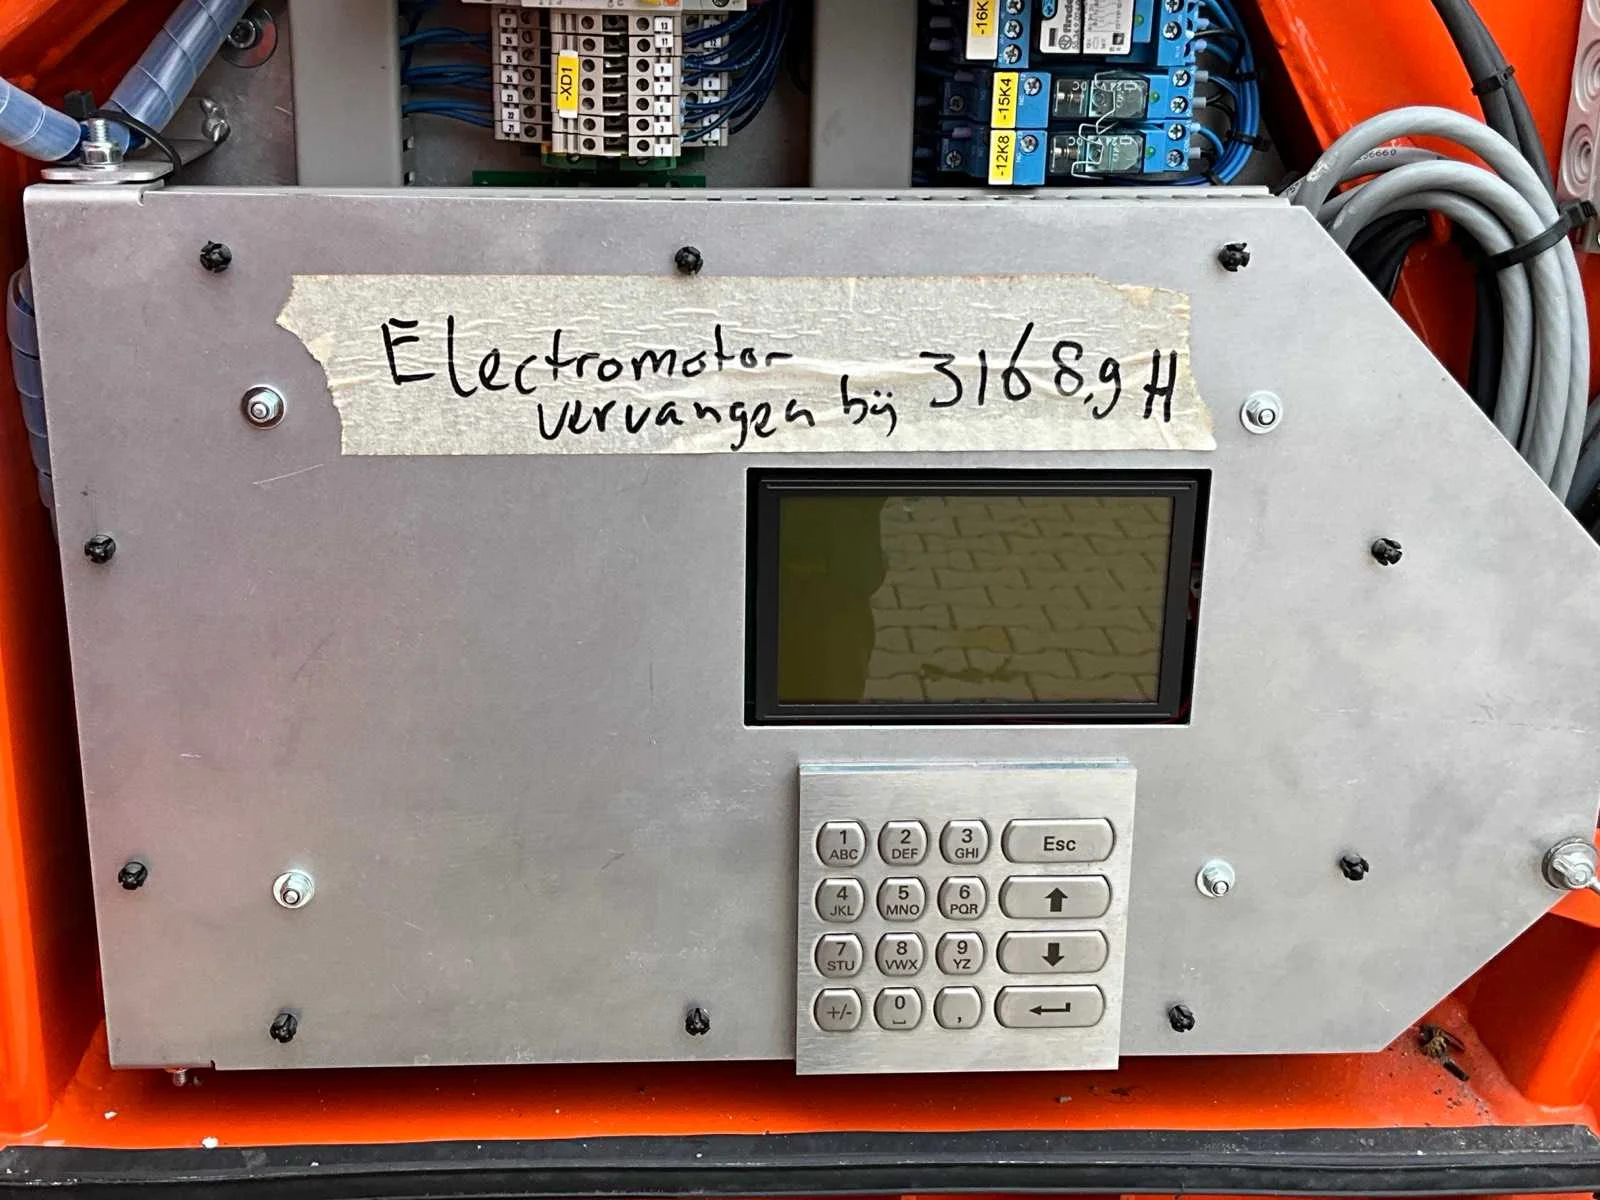 -16K
-XD1
-15K4
-12K8
24 V
DC
Electromotor
vervangen bij 3168,9 H
1 2 3 Esc
ABC DEF GHI
4 5 6
JKL MNO PQR
7 8 9
STU VWX YZ
+/- 0 ,